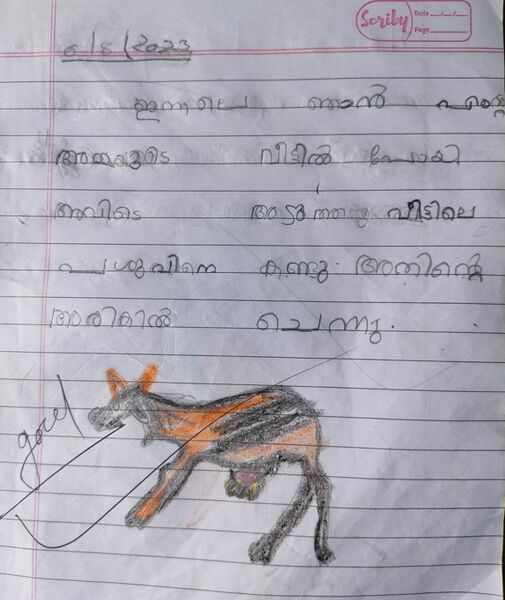 Scriby
Date
Page
6/8/2023
ഇന്നലെ ഞാൻ എന്റെ
അമ്മയുടെ വീട്ടിൽ പോയി
അവിടെ അടുത്ത വീട്ടിലെ
പശുവിനെ കണ്ടു. അതിന്റെ
അരികിൽ ചെന്നു.
good